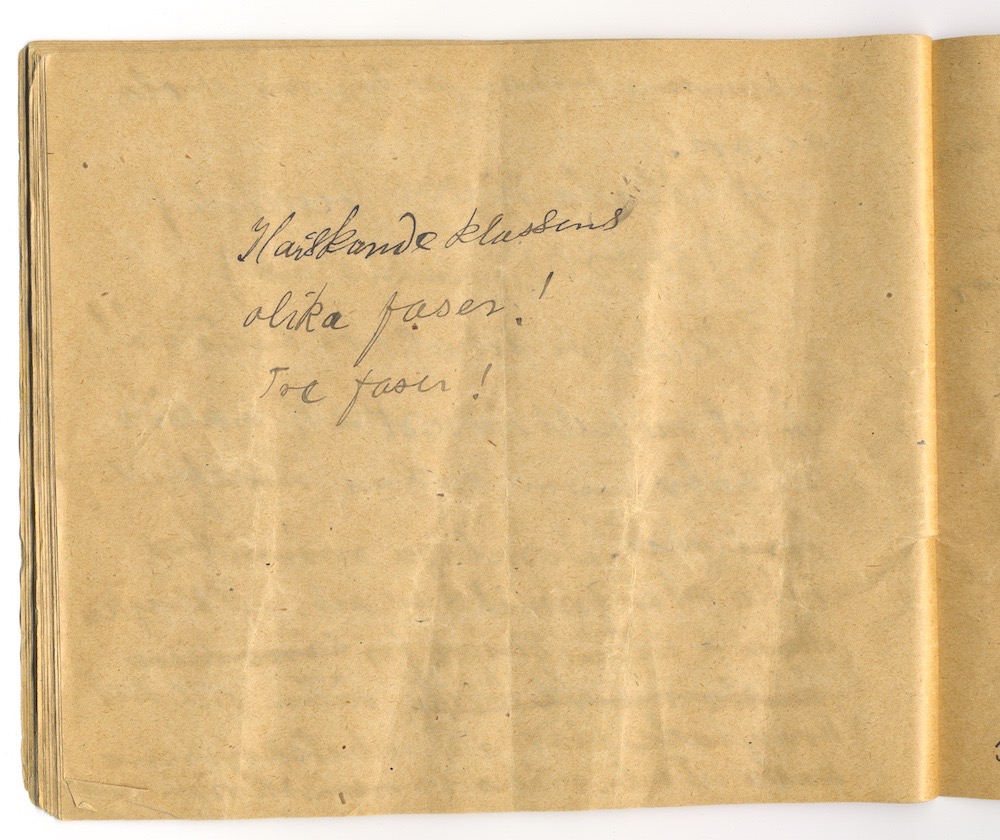 Härskande klassens
olika faser!
Tre faser!